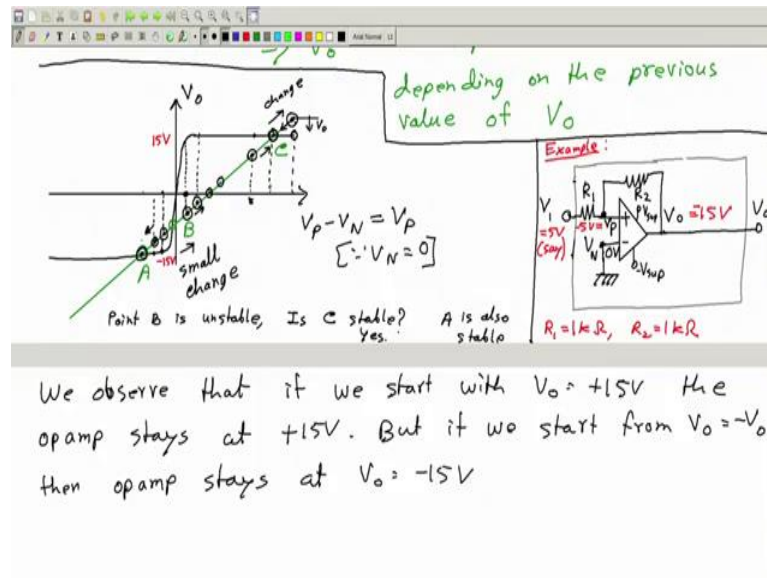 depending on the previous
value of Vo
Vo
change
15V
↓Vo
C
B
A
-15V
small
change
Vp - VN = Vp
[∵ VN = 0]
Point B is unstable, Is C stable? A is also
Yes. stable
Example:
R1
R2
V1
=5V
(say)
-5V=Vp
VN
0V
Vsup
-Vsup
Vo=-15V
Vo
R1=1kΩ, R2=1kΩ
We observe that if we start with Vo= +15V the
opamp stays at +15V. But if we start from Vo=-Vo
then opamp stays at Vo= -15V